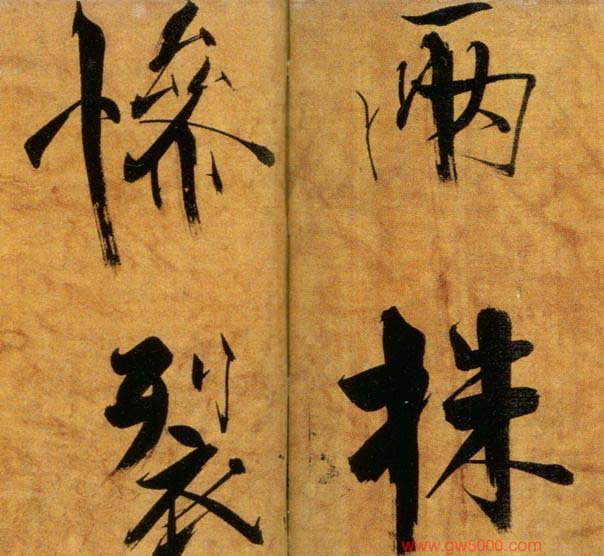 兩株
慘裂
www.gw5000.com